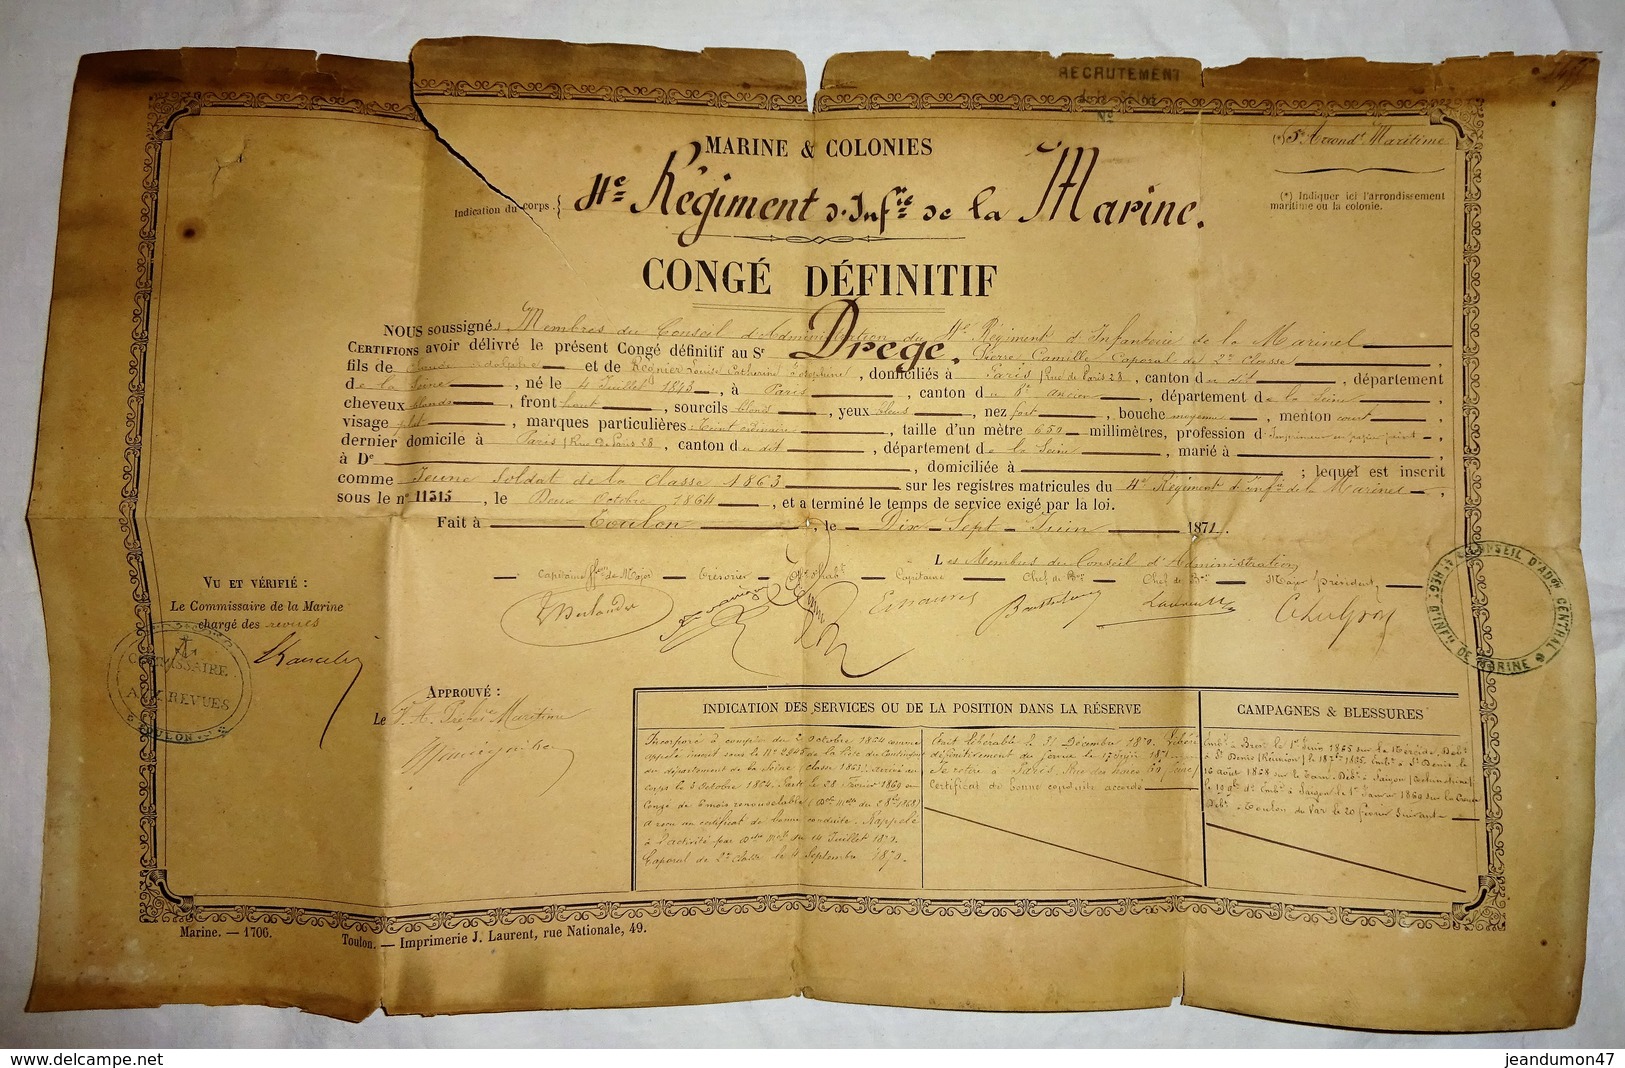 RECRUTEMENT
de la Seine
No
(*) 5e Arrondt Maritime
MARINE & COLONIES
(*) Indiquer ici l'arrondissement
maritime ou la colonie.
Indication du corps. { 4e Régiment d'Infrie de la Marine.
CONGÉ DÉFINITIF
NOUS soussignés Membres du Conseil d'Administration du 4e Régiment d'Infanterie de la Marine
CERTIFIONS avoir délivré le présent Congé définitif au Sr Drege, Pierre Camille Caporal de 2e Classe,
fils de Claude Adolphe et de Regnier Louise Catherine Joséphine, domiciliés à Paris Rue de Paris 28, canton du dit, département
de la Seine, né le 4 Juillet 1843, à Paris, canton du 8e ancien, département de la Seine,
cheveux blonds, front haut, sourcils blonds, yeux bleus, nez fort, bouche moyenne, menton court,
visage plat, marques particulières: teint ordinaire, taille d'un mètre 650 millimètres, profession d'Imprimeur en papier peint,
dernier domicile à Paris Rue de Paris 28, canton du dit, département de la Seine, marié à
à De, domiciliée à ; lequel est inscrit
comme Jeune Soldat de la classe 1863 sur les registres matricules du 4e Régiment d'Infie de la Marine,
sous le no 11515, le Deux Octobre 1864, et a terminé le temps de service exigé par la loi.
Fait à Toulon, le Dix Sept Juin 1871.
Les Membres du Conseil d'Administration
Capitaine ffons de Major Trésorier Offr d'habt Capitaine Chef de Bon Chef de Bon Major président
VU ET VÉRIFIÉ :
Le Commissaire de la Marine
chargé des revues
COMMISSAIRE
AUX REVUES
TOULON
CONSEIL D'ADon CENTRAL
4e REGt D'INFie DE MARINE
APPROUVÉ :
Le V. A. Préfet Maritime
INDICATION DES SERVICES OU DE LA POSITION DANS LA RÉSERVE
CAMPAGNES & BLESSURES
Incorporé à compter du 2 Octobre 1864 comme
appelé inscrit sous le No 2945 de la liste du Contingent
du département de la Seine (classe 1863) Arrivé au
corps le 5 Octobre 1864. Parti le 28 Février 1869 en
Congé de 6 mois renouvelable
a reçu un certificat de bonne conduite. Rappelé
à l'activité par du 14 Juillet 1870.
Caporal de 2e Classe le 4 Septembre 1870.
Était libérable le 31 Décembre 1870. Libéré
définitivement du service le 17 Juin 1871
Se retire à Paris, Rue du 59, Seine
Certificat de bonne conduite accordé
Embé à Brest le 1er Juin 1865 sur la Néréide. Debé
à St Denis (Réunion) le 1865. Embé à St Denis le
16 août 1868 sur le Tarn. Debé à Saïgon (Cochinchine)
le 19 do Embé à Saïgon le 1er Janvier 1869 sur la
Debé à Toulon du Var le 20 février suivant
Marine. — 1706.
Toulon. — Imprimerie J. Laurent, rue Nationale, 49.
www.delcampe.net
jeandumon47